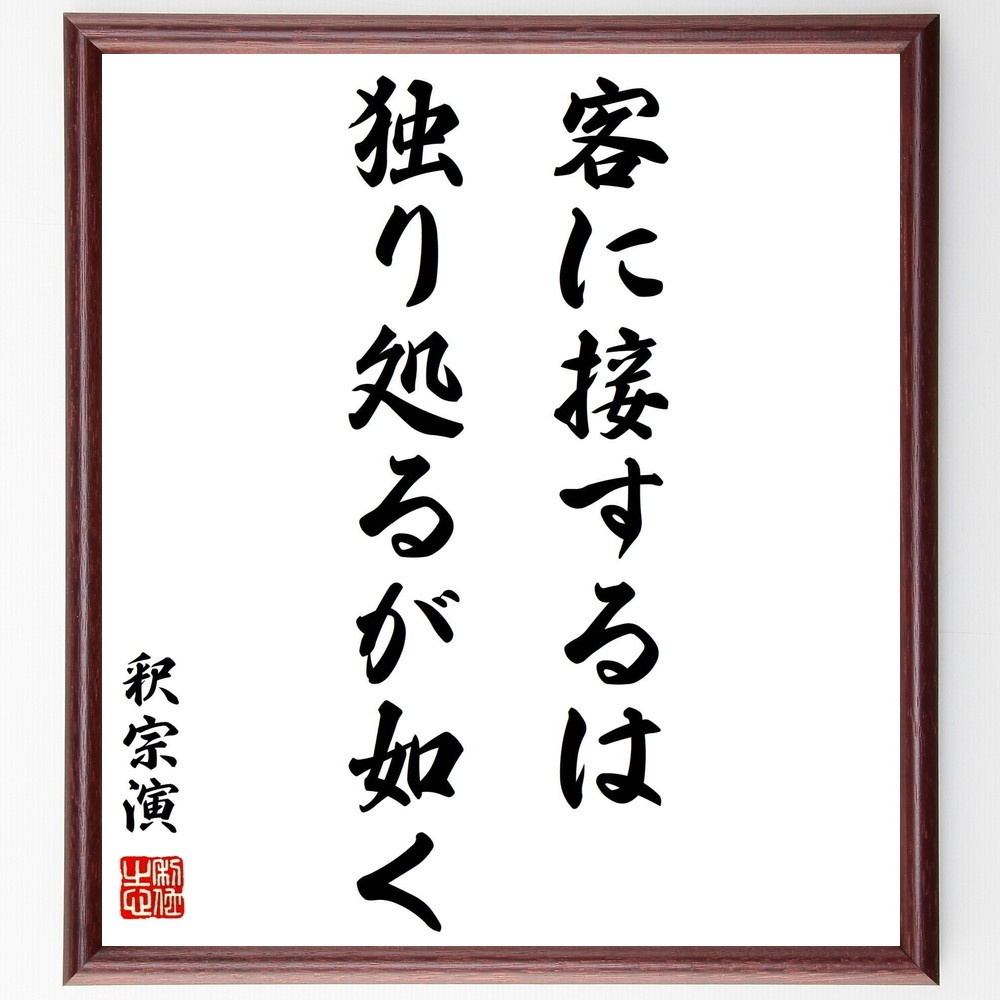 客に接するは
独り処るが如く
釈宗演